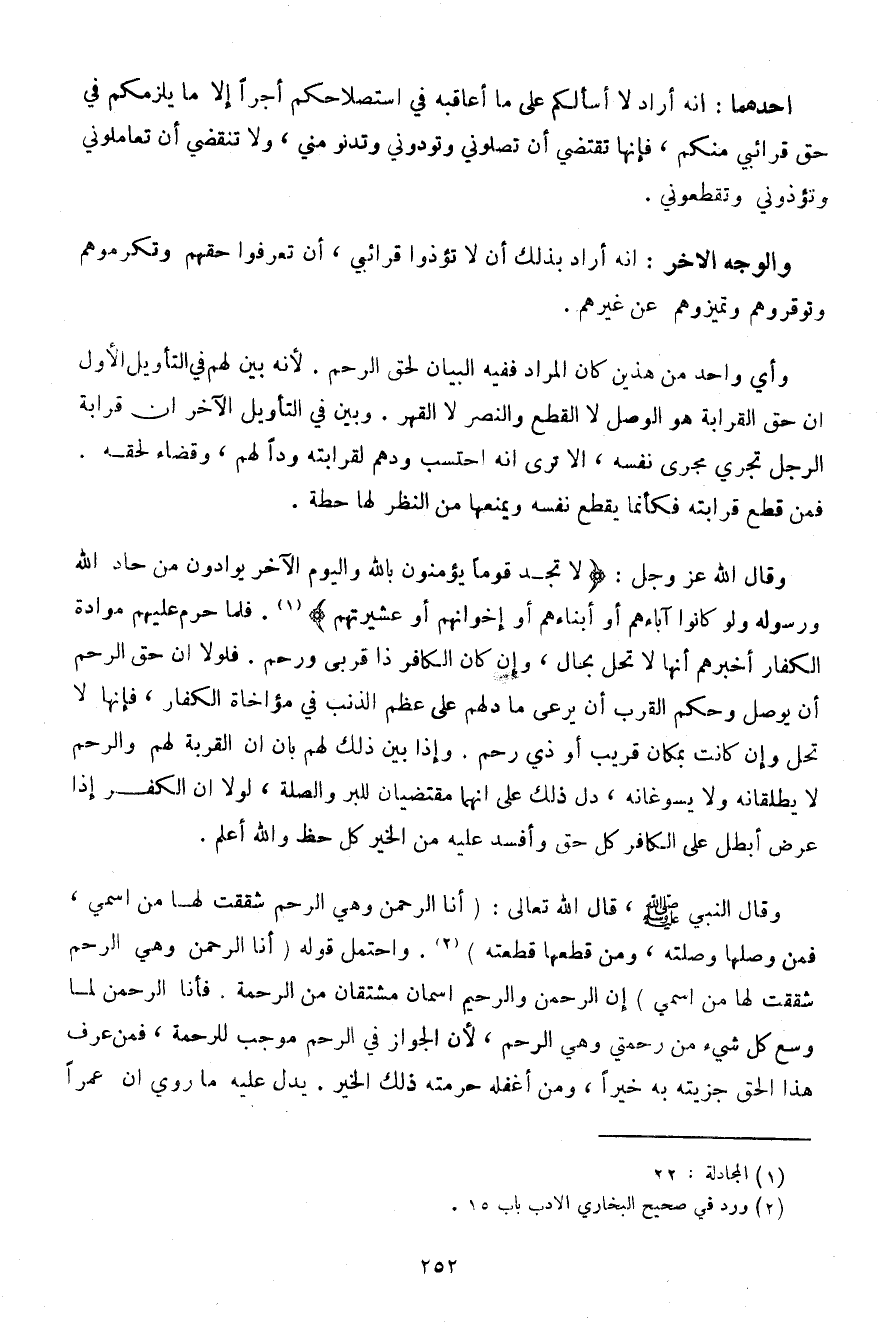 احدهما : انه أراد لا أسألكم على ما أعاقبه في استصلاحكم أجراً إلا ما يلزمكم في
حق قرائبي منكم ، فإنها تقتضي أن تصلوني وتودوني وتدنو مني ، ولا تنقضي أن تعاملوني
وتؤذوني وتقطعوني .
والوجه الاخر : انه أراد بذلك أن لا تؤذوا قرائبي ، أن تعرفوا حقهم وتكرموهم
وتوقروهم وتميزوهم عن غيرهم .
وأي واحد من هذين كان المراد ففيه البيان لحق الرحم . لأنه بين لهم في التأويل الأول
ان حق القرابة هو الوصل لا القطع والنصر لا القهر . وبين في التأويل الآخر ان قرابة
الرجل تجري مجرى نفسه ، الا ترى انه احتسب ودهم لقرابته وداً لهم ، وقضاء لحقه .
فمن قطع قرابته فكأنما يقطع نفسه ويمنعها من النظر لها حطة .
وقال الله عز وجل : ﴿ لا تجد قوماً يؤمنون بالله واليوم الآخر يوادون من حاد الله
ورسوله ولو كانوا آباءهم أو أبناءهم أو إخوانهم أو عشيرتهم ﴾ (١) . فلما حرم عليهم موادة
الكفار أخبرهم أنها لا تحل بحال ، وإن كان الكافر ذا قربى ورحم . فلولا ان حق الرحم
أن يوصل وحكم القرب أن يرعى ما دلهم على عظم الذنب في مؤاخاة الكفار ، فإنها لا
تحل وإن كانت بمكان قريب أو ذي رحم . وإذا بين ذلك لهم بان ان القربة لهم والرحم
لا يطلقانه ولا يسوغانه ، دل ذلك على انهما مقتضيان للبر والصلة ، لولا ان الكفر إذا
عرض أبطل على الكافر كل حق وأفسد عليه من الخير كل حظ والله أعلم .
وقال النبي ﷺ ، قال الله تعالى : ( أنا الرحمن وهي الرحم شققت لها من اسمي ،
فمن وصلها وصلته ، ومن قطعها قطعته ) (٢) . واحتمل قوله ( أنا الرحمن وهي الرحم
شققت لها من اسمي ) إن الرحمن والرحيم اسمان مشتقان من الرحمة . فأنا الرحمن لما
وسع كل شيء من رحمتي وهي الرحم ، لأن الجواز في الرحم موجب للرحمة ، فمن عرف
هذا الحق جزيته به خيراً ، ومن أغفله حرمته ذلك الخير . يدل عليه ما روي ان عمراً
(١) المجادلة : ٢٢
(٢) ورد في صحيح البخاري الادب باب ١٥ .
٢٥٢